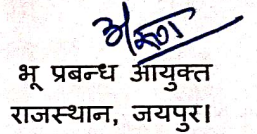 भू प्रबन्ध आयुक्त
राजस्थान, जयपुर।